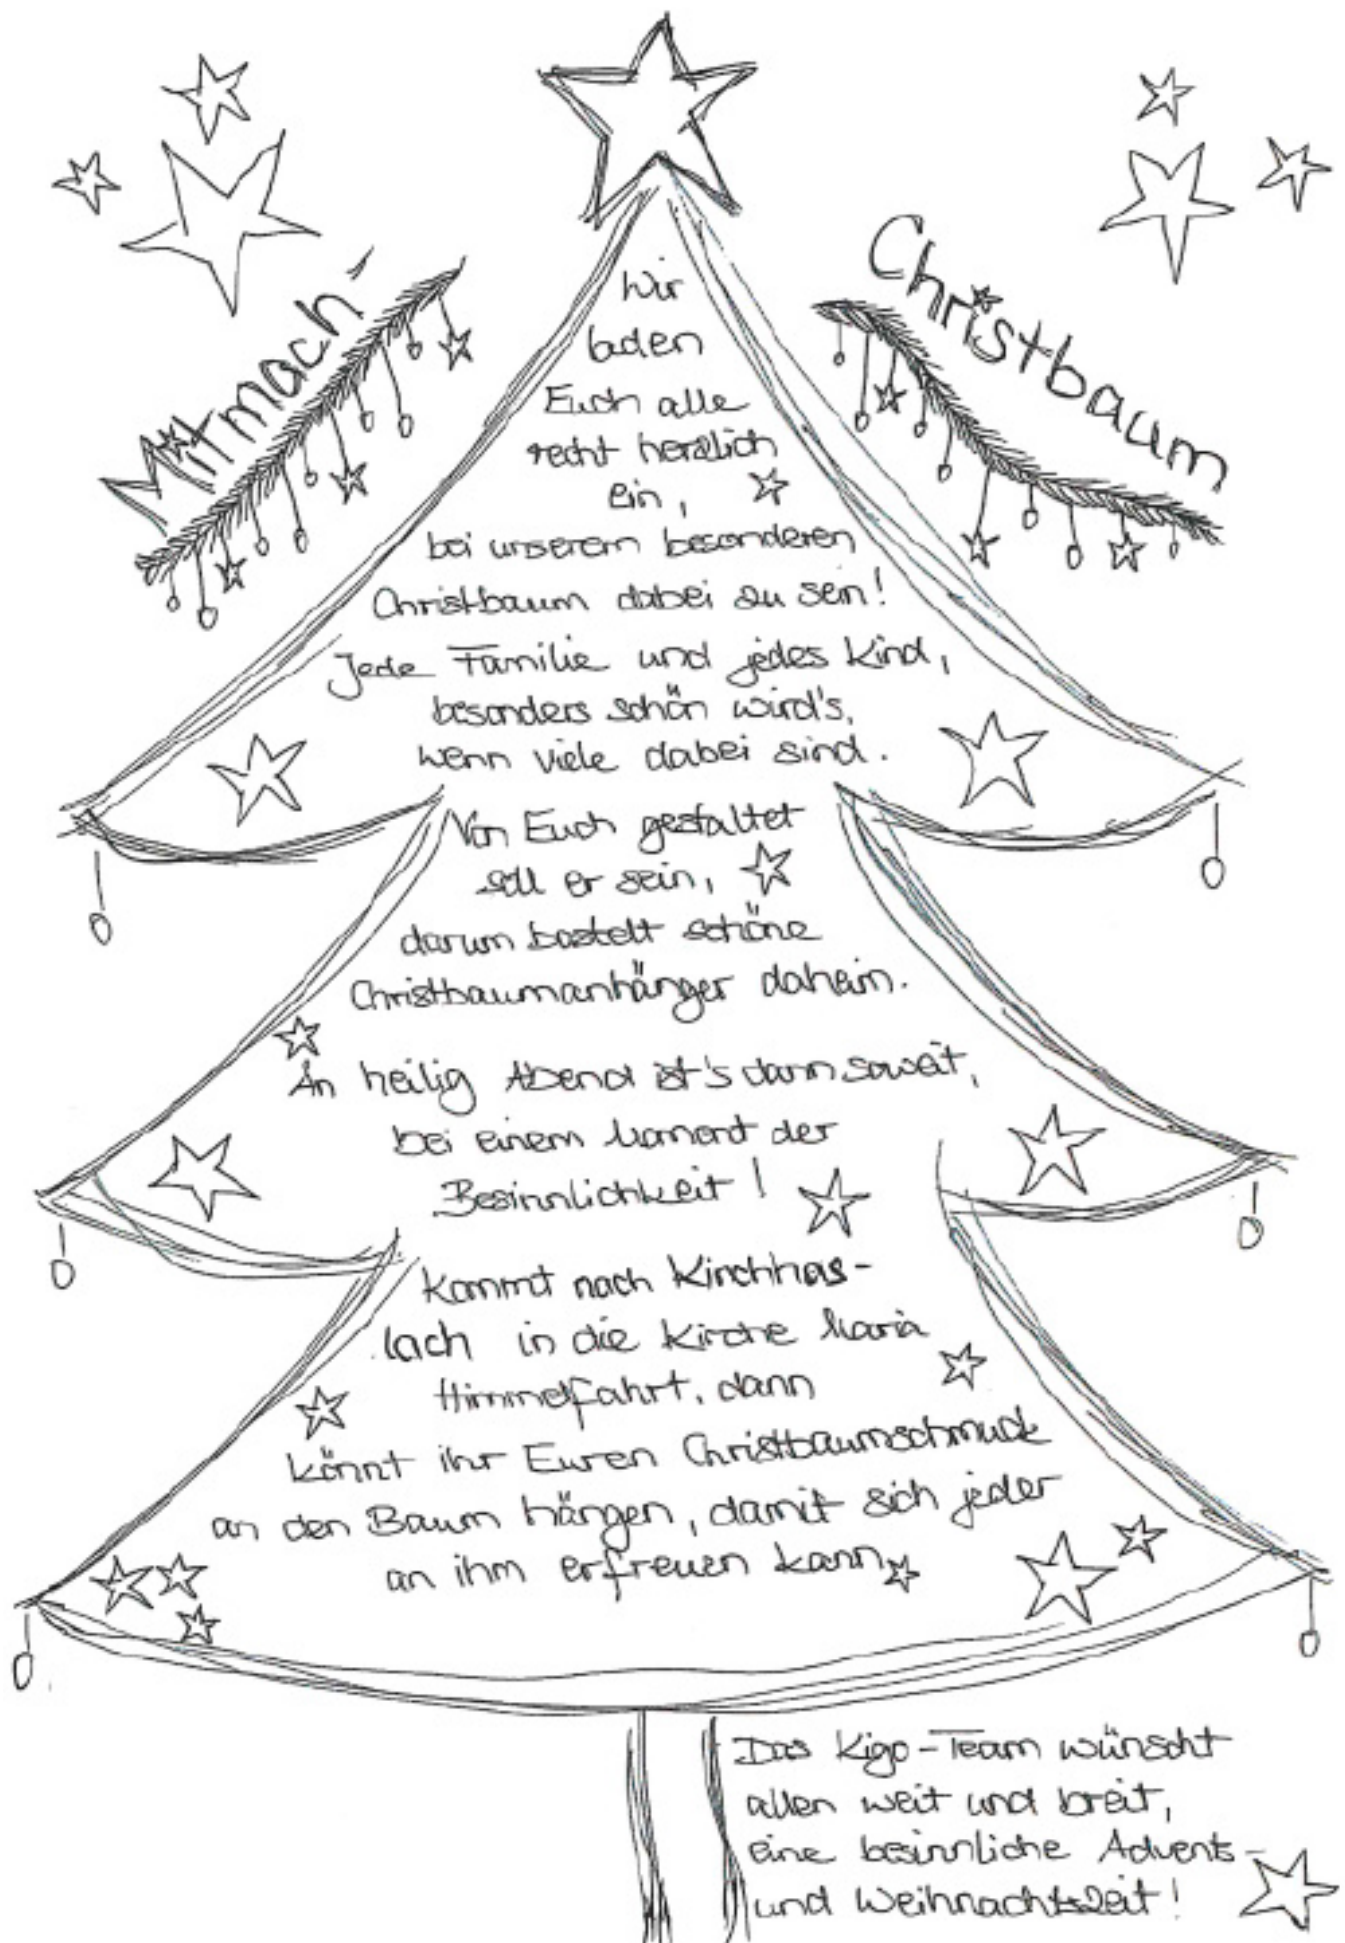 Mitmach-
Christbaum
Wir
laden
Euch alle
recht herzlich
ein,
bei unserem besonderen
Christbaum dabei zu sein!
Jede Familie und jedes Kind,
besonders schön wird's,
wenn viele dabei sind.
Von Euch gestaltet
soll er sein,
darum bastelt schöne
Christbaumanhänger daheim.
An heilig Abend ist's dann soweit,
bei einem Moment der
Besinnlichkeit!
Kommt nach Kirchhas-
lach in die Kirche Maria
Himmelfahrt, dann
könnt ihr Euren Christbaumschmuck
an den Baum hängen, damit sich jeder
an ihm erfreuen kann.
Das Kigo-Team wünscht
allen weit und breit,
eine besinnliche Advents-
und Weihnachtszeit!